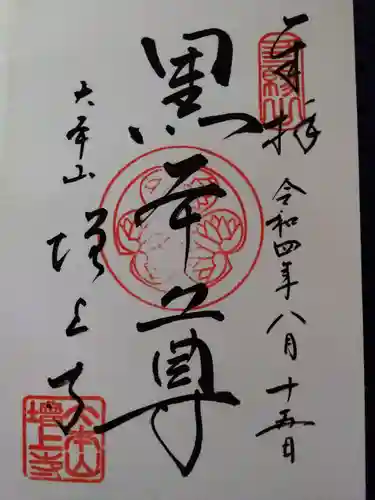 奉拝
令和四年八月十五日
黒本尊
大本山
増上寺
大本山
増上寺